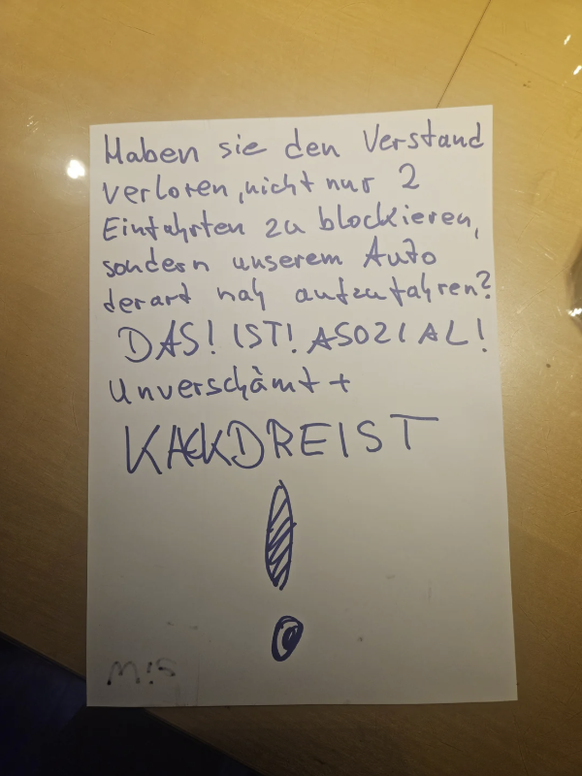 Haben sie den Verstand
verloren, nicht nur 2
Einfahrten zu blockieren,
sondern unserem Auto
derart nah aufzufahren?
DAS! IST! ASOZIAL!
Unverschämt +
KACKDREIST
!